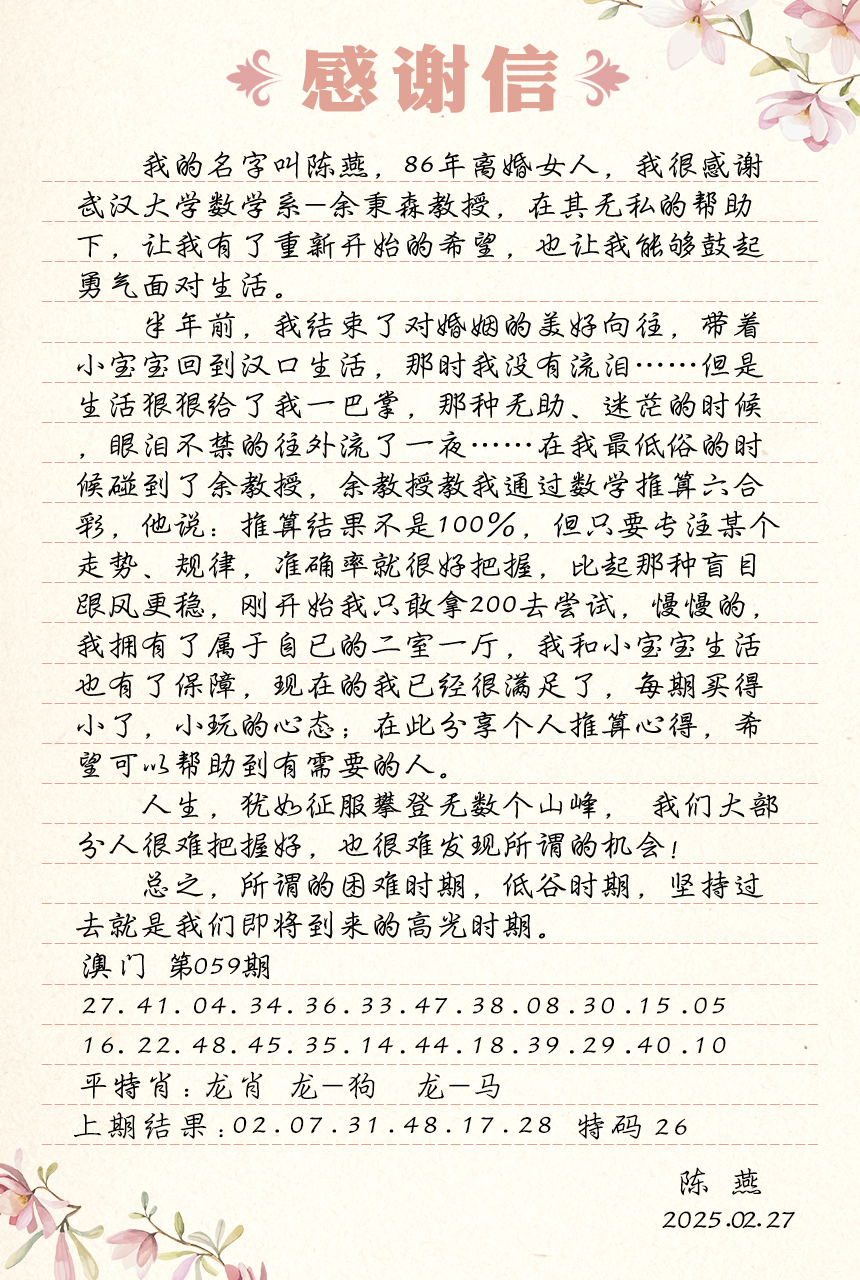 感谢信
我的名字叫陈燕，86年离婚女人，我很感谢
武汉大学数学系—余秉森教授，在其无私的帮助
下，让我有了重新开始的希望，也让我能够鼓起
勇气面对生活。
半年前，我结束了对婚姻的美好向往，带着
小宝宝回到汉口生活，那时我没有流泪……但是
生活狠狠给了我一巴掌，那种无助、迷茫的时候
，眼泪不禁的往外流了一夜……在我最低俗的时
候碰到了余教授，余教授教我通过数学推算六合
彩，他说：推算结果不是100%，但只要专注某个
走势、规律，准确率就很好把握，比起那种盲目
跟风更稳，刚开始我只敢拿200去尝试，慢慢的，
我拥有了属于自已的二室一厅，我和小宝宝生活
也有了保障，现在的我已经很满足了，每期买得
小了，小玩的心态；在此分享个人推算心得，希
望可以帮助到有需要的人。
人生，犹如征服攀登无数个山峰， 我们大部
分人很难把握好，也很难发现所谓的机会！
总之，所谓的困难时期，低谷时期，坚持过
去就是我们即将到来的高光时期。
澳门 第059期
27.41.04.34.36.33.47.38.08.30.15.05
16.22.48.45.35.14.44.18.39.29.40.10
平特肖：龙肖 龙—狗 龙—马
上期结果：02.07.31.48.17.28 特码 26
陈 燕
2025.02.27